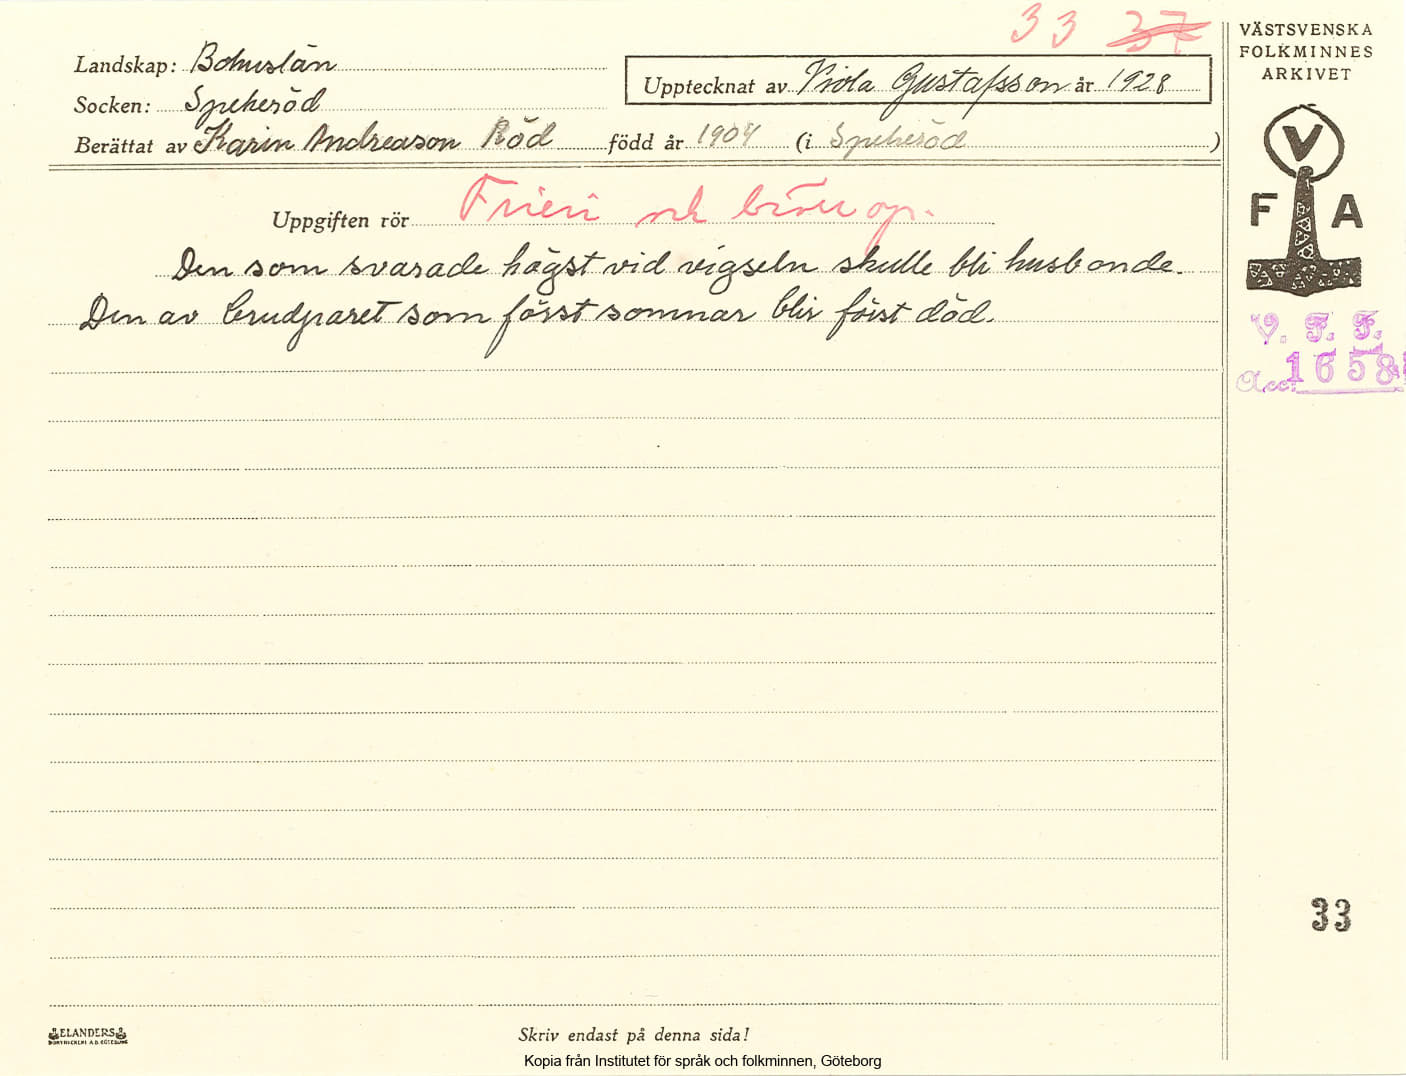 33 37
VÄSTSVENSKA
FOLKMINNES
ARKIVET
Landskap: Bohuslän
Upptecknat av Viola Gustafsson år 1928
Socken: Spekeröd
Berättat av Karin Andreason Röd född år 1904 (i Spekeröd)
V
F A
Uppgiften rör Frieri och bröllop.
Den som svarade högst vid vigseln skulle bli husbonde.
Den av brudparet som först somnar blir först död.
V. F. F.
Acc: 1658
33
ELANDERS
Skriv endast på denna sida!
Kopia från Institutet för språk och folkminnen, Göteborg